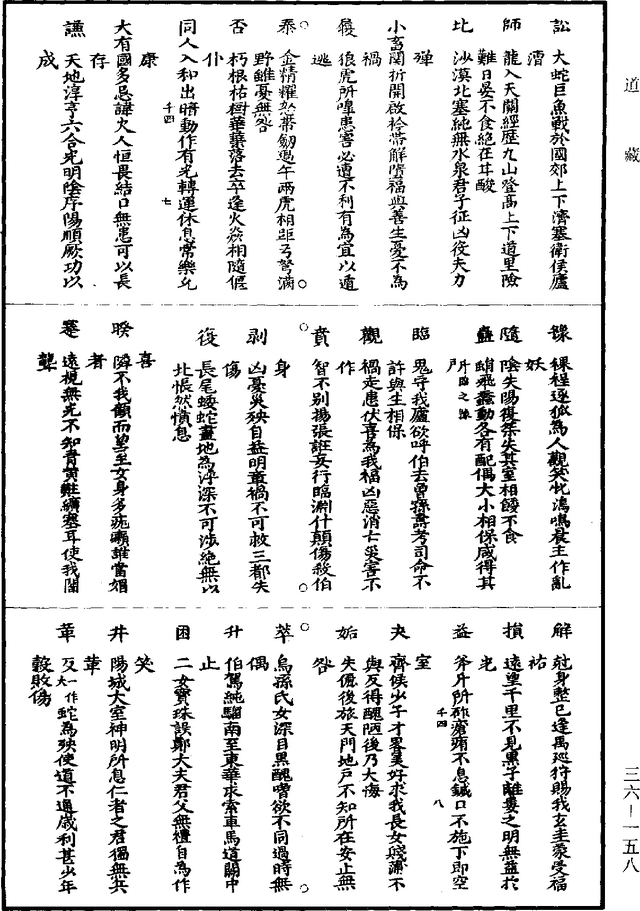 道藏
訟　大蛇巨魚戰於國郊上下濟塞衛侯廬
漕
師　龍入天關經歷九山登高上下道里險
難日晏不食絕在其酸
比　沙漠北塞純無水泉君子征凶役夫力
殫
小畜　關折開啟衿帶解墮福與善生憂不為
禍
履　狼虎所嗥患害必遭不利有為宜以遁
逃
泰　金精耀怒帶劒過午兩虎相距弓弩滿
野雖憂無咎
否　朽根枯樹華葉落去卒逢火焱相隨偃
仆
千四　七
同人　入和出暗動作有光轉運休息常樂允
康
大有　國多忌諱大人恒畏結口無患可以長
存
謙　天地淳亨六合光明陰序陽順厥功以
成
豫　裸裎逐狐為人觀笑牝鴻鳴晨主作亂
妖
隨　陰失陽復桀失其室相餧不食
蠱　蜎飛蠢動各有配偶大小相保咸得其
所
臨　鬼守我廬欲呼伯去曾孫壽考司命不
許與生相保
觀　禍走患伏喜為我福凶惡消亡災害不
作
賁　智不別揚張狂妄行臨淵仆顛傷殺伯
身
剝　凶憂災殃自益明章禍不可救三都失
傷
復　長尾蝼蛇畫地為河深不可涉絕無以
北悵然憤息
喜
睽　隣不我顧而望玉女身多疣癩誰當媚
者
蹇　遠視無光不知青黃黈纊塞耳使我闇
聾
解　莊身整己逢禹巡狩賜我玄圭蒙受福
祐
損　遠望千里不見黑子離婁之明無益於
光
益　斧斤所斫瘡痏不息鍼口不施下即空
室
千四　八
夬　齊侯少子才畧美好求我長女賤薄不
與反得醜陋後乃大悔
姤　失儷後旅天門地戶不知所在安止無
咎
萃　烏孫氏女深目黑醜嗜欲不同過時無
偶
升　伯駕純騮南至東華求索車馬道闢中
止
困　二女寶珠誤鄭大夫君父無禮自為作
笑
井　陽城大室神明所息仁者之君獨無兵
華
革　蛇為殃使道不通歲利甚少年
穀敗傷
三六—一五八